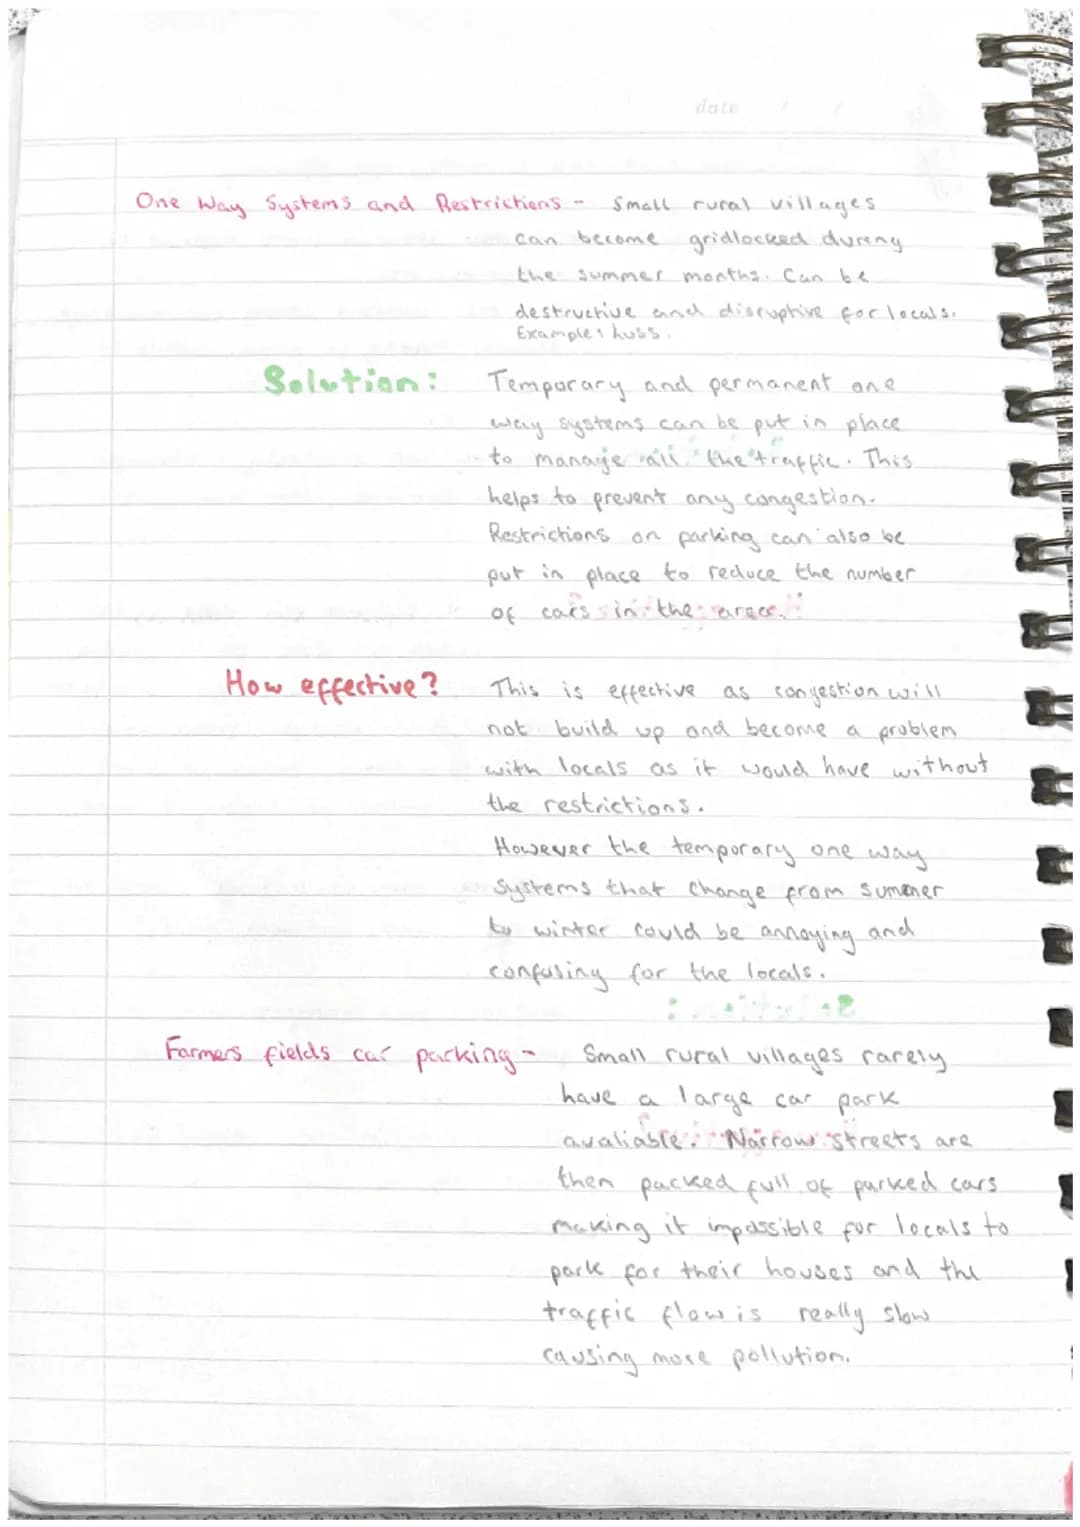 date / /
One Way Systems and Restrictions - Small rural villages
can become gridlocked during
the summer months. Can be
destructive and disruptive for locals.
Example: huss.
Solution: Temporary and permanent one
way systems can be put in place
to manage all the traffic. This
helps to prevent any congestion.
Restrictions on parking can also be
put in place to reduce the number
of cars in the area.
How effective? This is effective as congestion will
not build up and become a problem
with locals as it would have without
the restrictions.
However the temporary one way
systems that change from summer
to winter could be annoying and
confusing for the locals.
Farmers fields car parking - Small rural villages rarely
have a large car park
avaliable. Narrow streets are
then packed full of parked cars
making it impossible for locals to
park for their houses and the
traffic flow is really slow
causing more pollution.